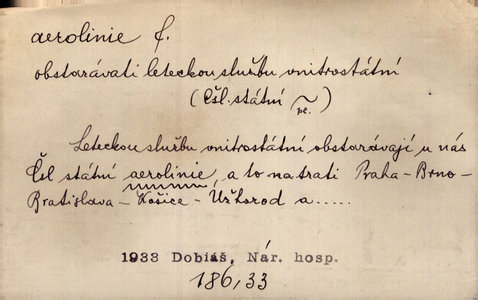 aerolinie f.
obstarávati leteckou službu vnitrostátní
(Čsl. státní ~ pl.)
Leteckou službu vnitrostátní obstarávají u nás
Čsl státní aerolinie, a to na trati Praha – Brno –
Bratislava – Košice – Užhorod a.....
1933 Dobiáš, Nár. hosp.
186,33